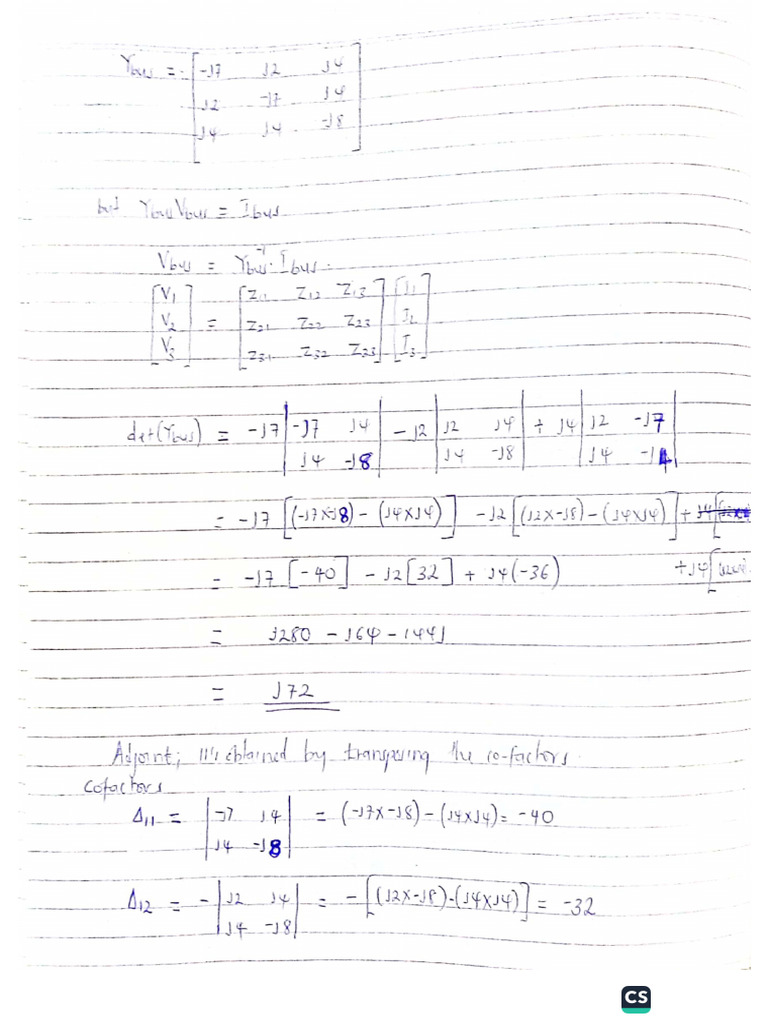 Ybus = [ -J7 J2 J4
J2 -J7 J4
J4 J4 -J8 ]
but YbusVbus = Ibus
Vbus = Ybus⁻¹·Ibus.
[V1] = [Z11 Z12 Z13] [I1]
[V2] [Z21 Z22 Z23] [I2]
[V3] [Z31 Z32 Z33] [I3]
det(Ybus) = -J7 | -J7 J4 | - J2 | J2 J4 | + J4 | J2 -J7 |
| J4 -J8 | | J4 -J8 | | J4 -J4 |
= -J7 [(-J7x-J8) - (J4xJ4)] - J2 [(J2x-J8) - (J4xJ4)] +
= -J7 [-40] - J2 [32] + J4 (-36) + J4 [
= J280 - J64 - J144J
= J72
Adjoint; It's obtained by transposing the co-factors.
Cofactors
Δ11 = | -J7 J4 | = (-J7x-J8) - (J4xJ4) = -40
| J4 -J8 |
Δ12 = - | J2 J4 | = - [(J2x-J8) - (J4xJ4)] = -32
| J4 -J8 |
CS